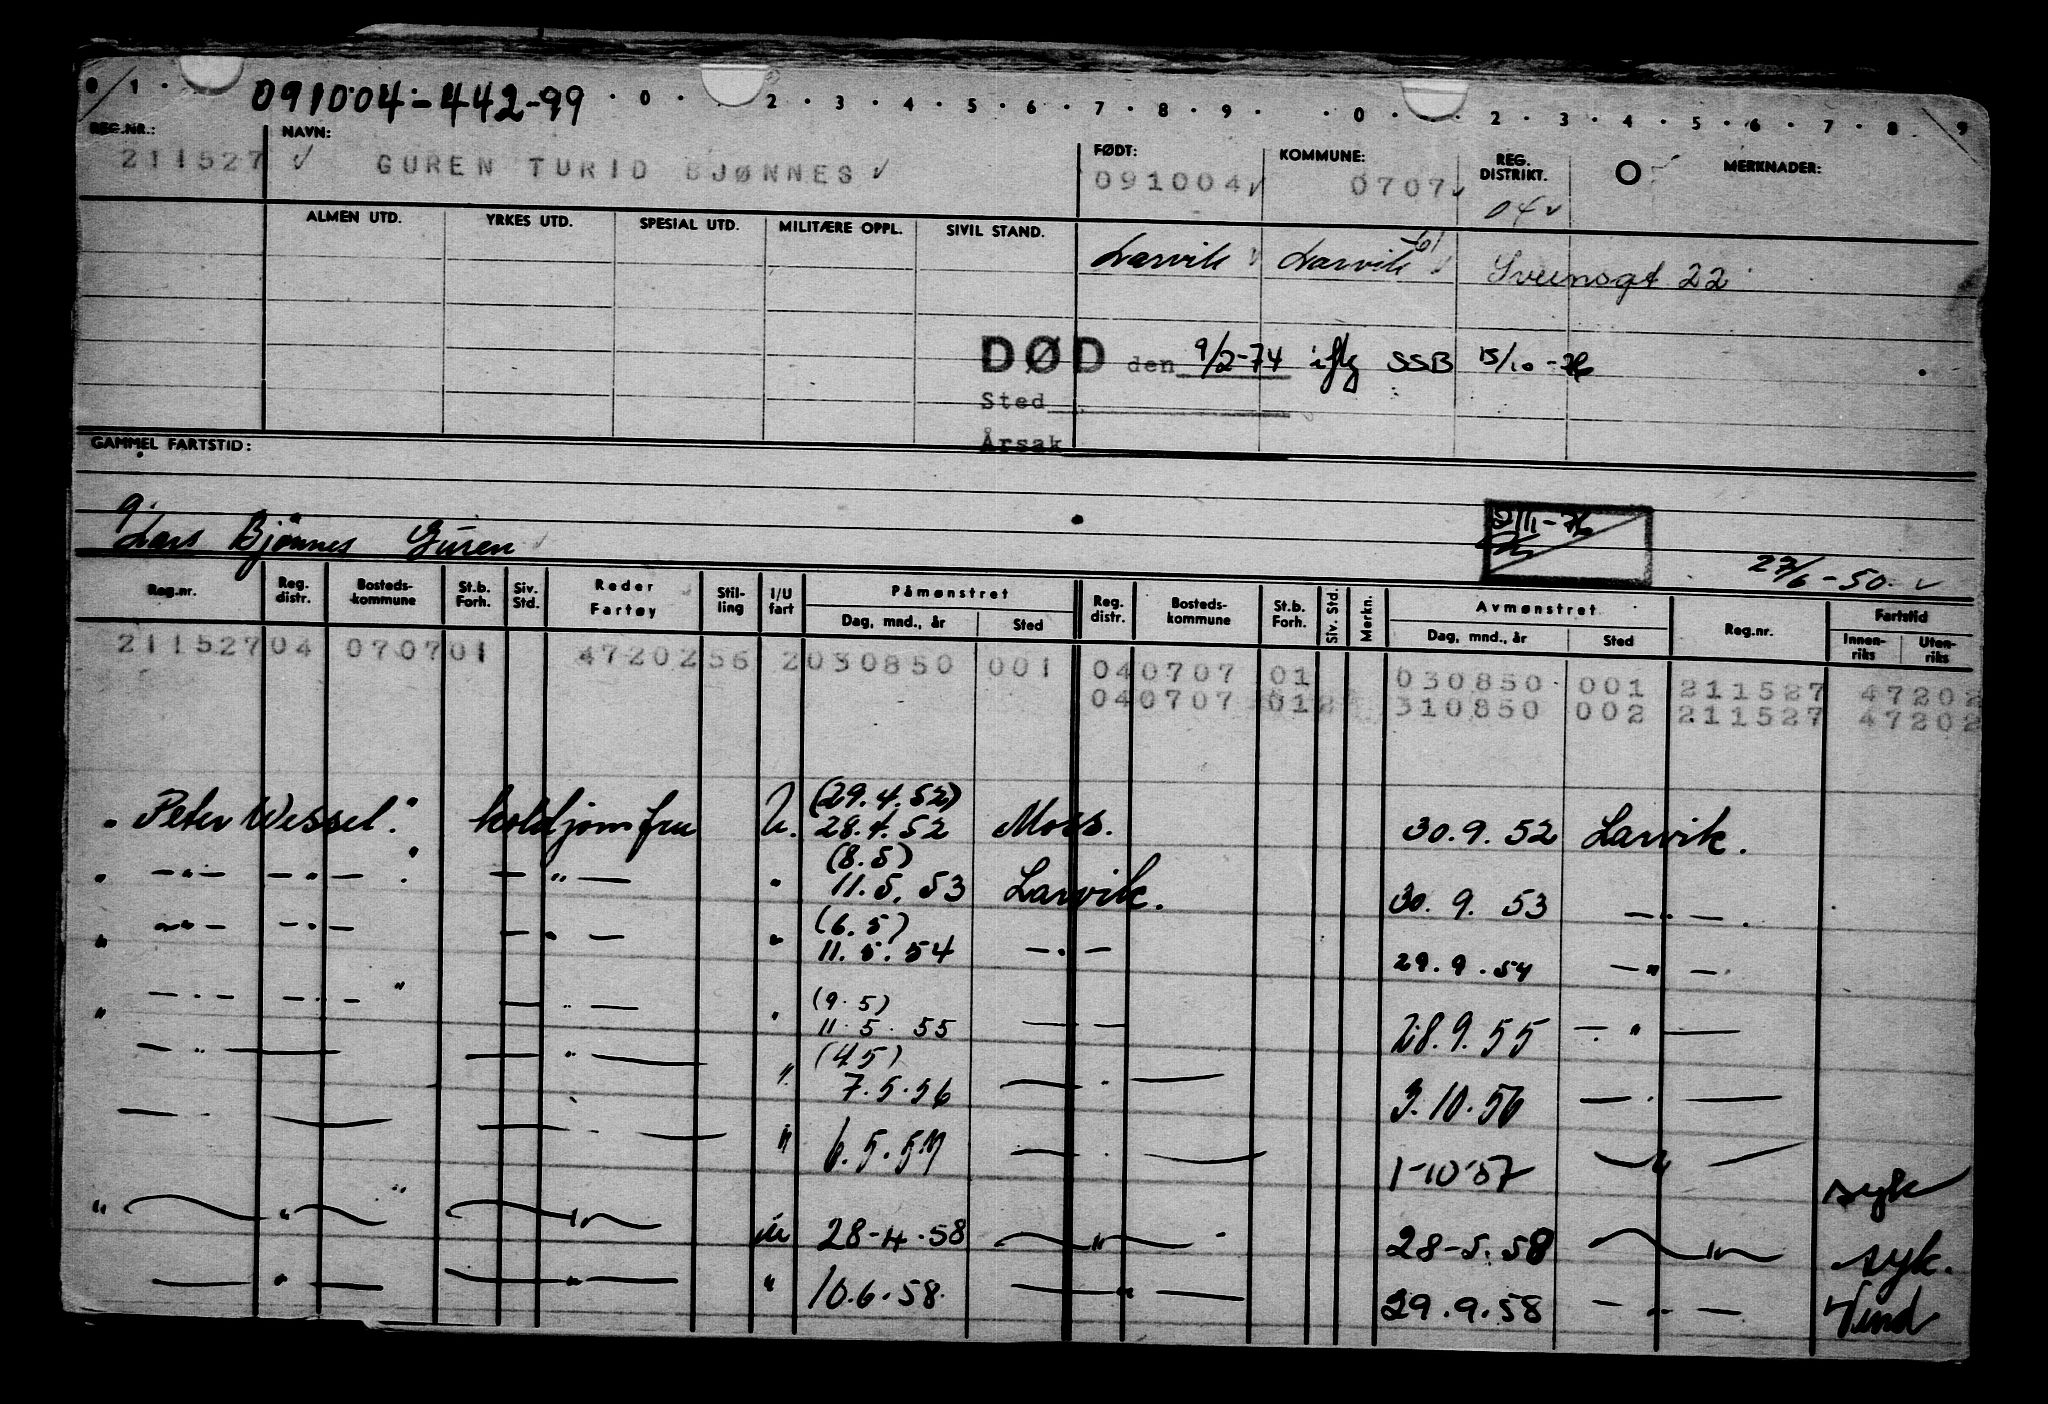 0 1 · 091004-442-99 · 0 · · 2 · 3 · 4 · 5 · 6 · 7 · 8 · 9 · · 0 · · 2 · 3 · 4 · 5 · 6 · 7 · 8 · 9
REG.NR.: NAVN: FØDT: KOMMUNE: REG. DISTRIKT. O MERKNADER:
211527 ✓ GUREN TURID BJØNNES ✓ 091004 ✓ 0707 ✓ 04 ✓
ALMEN UTD. YRKES UTD. SPESIAL UTD. MILITÆRE OPPL. SIVIL STAND.
Larvik Larvik Sveinsgt 22
DØD den 9/2-74 iflg SSB 15/10-76
Sted
Årsak
GAMMEL FARTSTID:
g.
Lars Bjønnes Guren 2/11-76 27/6-50 ✓
Reg.nr. Reg. distr. Bosteds-kommune St.b. Forh. Siv. Std. Reder Fartøy Stil-ling I/U fart Påmønstret Dag, mnd., år Sted Reg. distr. Bosteds-kommune St.b. Forh. Siv. Std. Merkn. Avmønstret Dag, mnd., år Sted Reg.nr. Fartstid Innen-riks Uten-riks
211527 04 0707 01 47202 56 2 030850 001 04 0707 01 030850 001 211527 47202
04 0707 01 2 310850 002 211527 47202
(29.4.52)
" Peter Wessel." koldjomfru U. 28.4.52 Moss. 30.9.52 Larvik.
(8.5)
" — " — — " — " — " — " 11.5.53 Larvik. 30. 9. 53 — " —
(6.5)
" — " — — " — — " — " 11.5.54 — " — 29.9.54 — " —
(9.5)
" — " — — " — " — " — " 11.5.55 — — 28.9.55 — " —
(4.5)
— " — — " — " 7.5.56 — " — 3.10.56 — " —
— " — — " — " 6.5.57 — " — 1-10-57 — " — syk
" — " — " — " — U 28-4.58 — " — 28-5.58 — " — syk.
— " — — " — " 10.6.58. — " — 29.9.58 — " — Vend